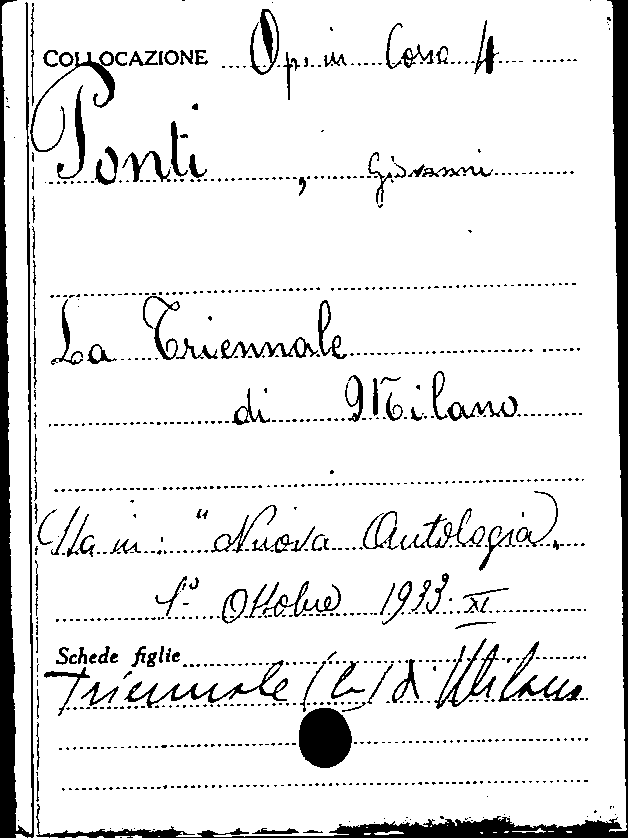 COLLOCAZIONE Op. in Corso 4
Ponti, Giovanni
La Triennale
di Milano
(Sta in: "Nuova Antologia)
1º Ottobre 1933. XI
Schede figlie
Triennale (la) di Milano